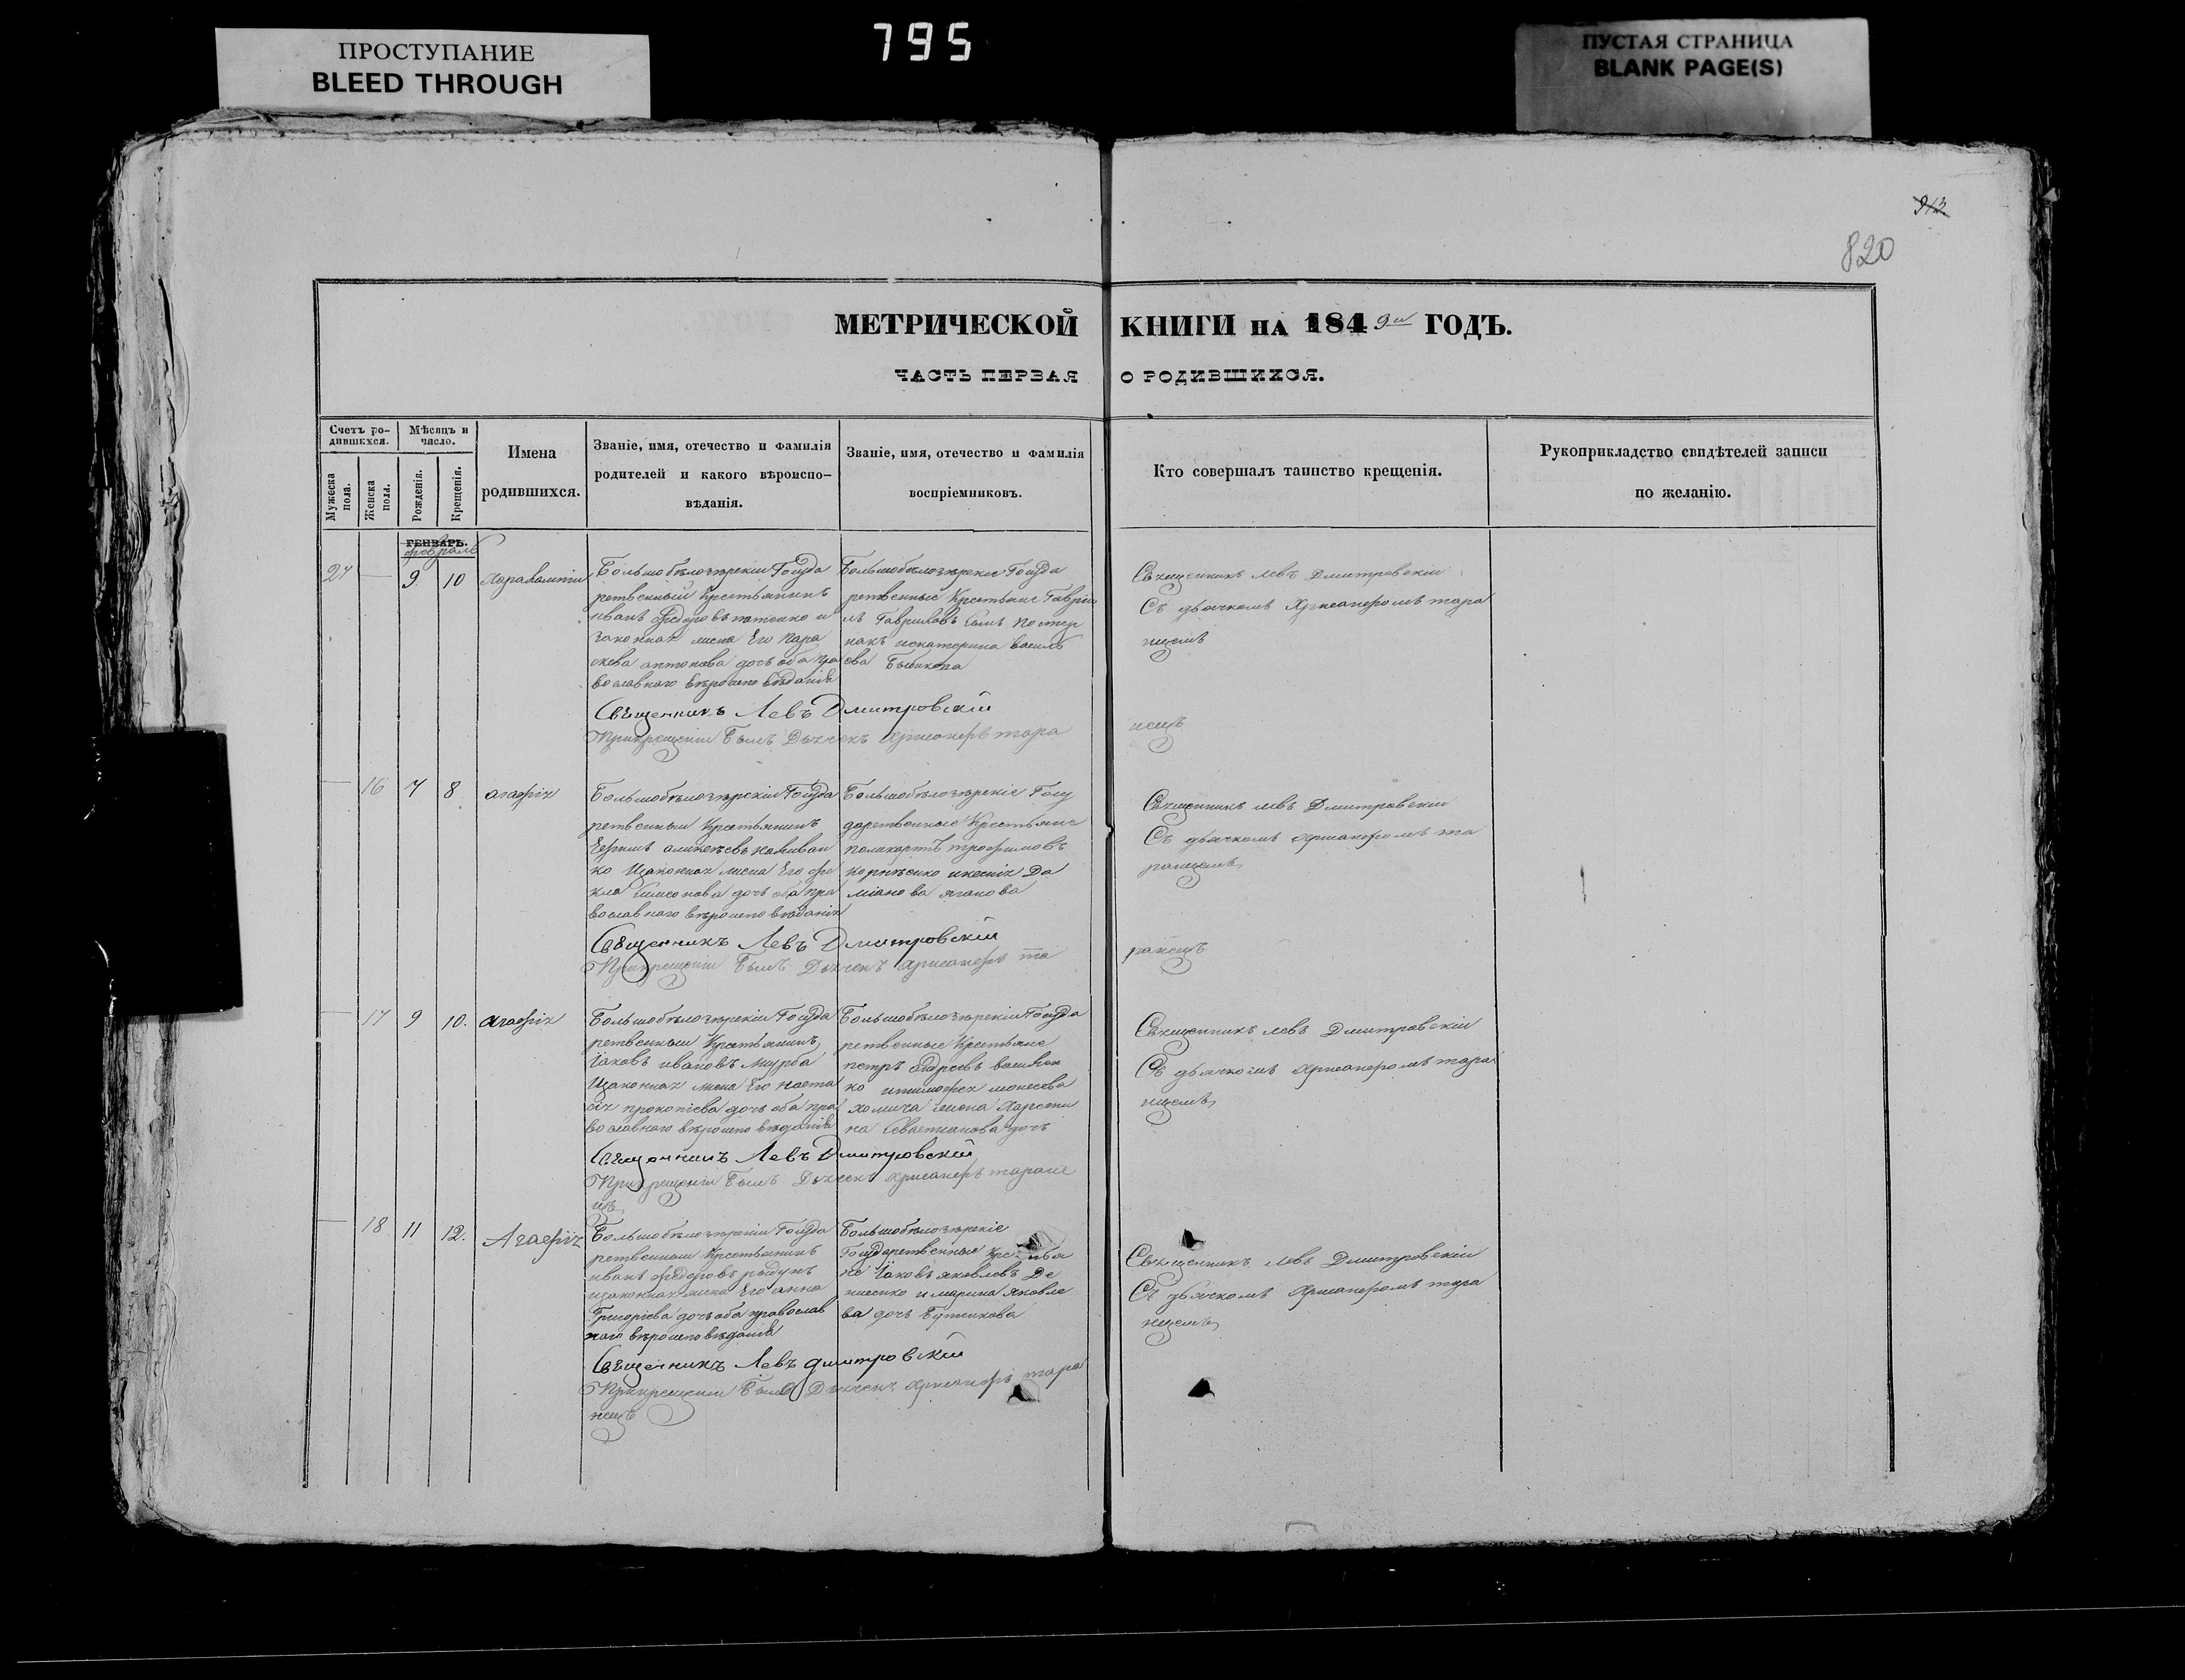 ПРОСТУПАНИЕ
BLEED THROUGH
795
ПУСТАЯ СТРАНИЦА
BLANK PAGE(S)
913
820
МЕТРИЧЕСКОЙ КНИГИ НА 1849й ГОДЪ.
ЧАСТЬ ПЕРВАЯ О РОДИВШИХСЯ.
Счетъ ро-
дившихся.
Мужеска
пола.
Женска
пола.
Мѣсяцъ и
число.
Рожденія.
Крещенія.
Имена
родившихся.
Званіе, имя, отечество и фамилія
родителей и какого вѣроиспо-
вѣданія.
Званіе, имя, отечество и фамилія
воспріемниковъ.
Кто совершалъ таинство крещенія.
Рукоприкладство свидѣтелей записи
по желанію.
ГЕНВАРЬ.
февраль
27 9. 10 Харалампіи
Большобѣлозѣрскіи Госуда
рственный Крестьянинъ
иванъ Федоровъ и
законная жена Его Пара
скева антонова дочь оба пра
вославного вѣроисповѣданія
Большобѣлозѣрскіе Госуда
рственные Крестьяне Гаврі
лъ Гавриловъ сынъ Постер
накъ иекатерина василь
ева
Священникъ левъ Дмитровскіи
Съ дьячкомъ Хрисанфомъ тара
нцемъ
Священникъ Левъ Дмитровскій
Прикрещеніи Былъ Дьячекъ Хрисанфъ тара
нецъ
16 7 8 агафія
Большобѣлозѣрскіи Госуда
рственныи Крестьянинъ
алиѯѣевъ
ко Изаконная жена Его фе
кла Симеонова дочь оба пра
вославного вѣроисповѣданія
Большобѣлозѣрскіе Госу
дарственные Крестьяне
поликарпъ трофимовъ
Корнѣенко иксенія Да
міанова
Священникъ левъ Дмитровскіи
Съ дьячкомъ хрисанфомъ та
ранцемъ
Священникъ Левъ Дмитровскій
Прикрещеніи Былъ Дьячекъ Хрисанфъ та
ранецъ
17 9 10. агафія
Большобѣлозѣрскіи Госуда
рственныи Крестьянинъ
Іаковъ ивановъ мурба
Изаконная жена Его наста
сія прокопіева дочь оба пра
вославного вѣроисповѣданія
Большобѣлозѣрскіи Госуда
рственные Крестьяне
петръ
ко итимофея моисеева
хомича жена Харети
на Севастианова дочь
Священникъ левъ Дмитровскіи
Съ дьячкомъ Хрисанфомъ тара
нцемъ
Священникъ Левъ Дмитровскій
Прикрещеніи Былъ Дьячекъ Хрисанфъ таране
цъ
18 11 12. Агафія
Большобѣлозѣрскіи Госуда
рственныи Крестьянинъ
иванъ федоровъ
изаконная жена Его анна
Григорієва дочь оба православ
ного вѣроисповѣданія
Большобѣлозѣрскіе
Государственные Крестья
не Іаковъ яковлевъ Де
нисенко имарина яковле
ва дочь
Священникъ левъ Дмитровскіи
Съ дьячкомъ Хрисанфомъ тара
нцемъ
Священникъ Левъ дмитровскій
Прикрещеніи Былъ Дьячекъ Хрисанфъ тара
нецъ